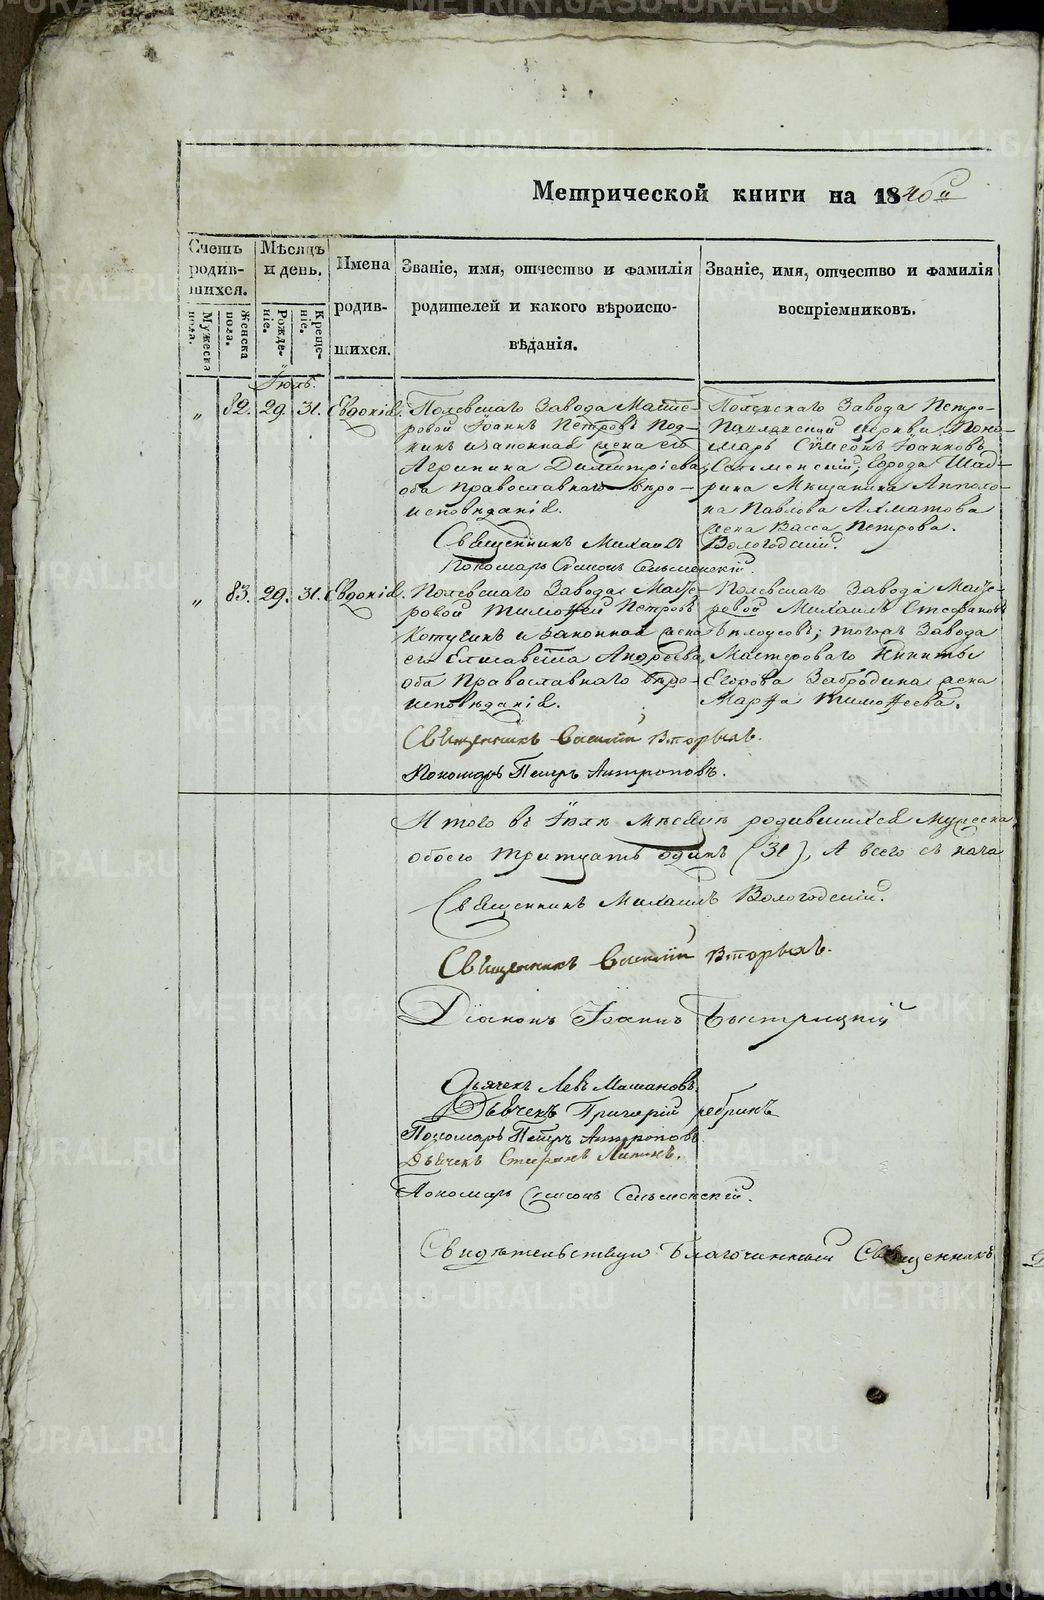 Метрической книги на 1840й
Счетъ родив-шихся.
Мужеска пола.
Женска пола.
Мѣсяцъ и день.
Рожде-ніе.
Креще-ніе.
Имена
родив-
шихся.
Званіе, имя, отчество и фамилія
родителей и какого вѣроиспо-
вѣданія.
Званіе, имя, отчество и фамилія
воспріемниковъ.
Іюль.
„ 82. 29. 31. Евдокія.
Полевскаго Завода Масте-
ровой Іоаннъ Петровъ
и законная жена его
Агрипина Димитріева,
оба православнаго вѣро-
исповѣданія.
Священникъ Михаилъ Вологодскій.
Пономарь Симеонъ Сельменскій.
Полевскаго Завода Петро-
Павловской церкви Поно-
марь Симеонъ Іоанновъ
Сельменскій, Города Шад-
рина Мѣщанина Апполо-
на Павлова Ахматова
жена Васса Петрова.
„ 83. 29. 31. Евдокія.
Полевскаго Завода Масте-
ровой Тимоѳей Петровъ
Котугинъ и Законная жена
его Елисавета Андреева,
оба Православнаго вѣро-
исповѣданія.
Священникъ Василій Вторыхъ.
Пономарь Петръ Антроповъ.
Полевскаго Завода Масте-
ровой Михаилъ Стефановъ
тогожъ Завода
Мастероваго Никиты
Егорова Забродина жена
Марѳа Тимоѳеева.
Итого въ Іюлѣ Мѣсяцѣ родившихся Мужеска
обоего тритцать одинъ (31), А всего съ нача
Священникъ Михаилъ Вологодскій.
Священникъ Василій Вторыхъ.
Діаконъ Іоаннъ Быстрицкій
Дьячекъ Левъ Машановъ.
Дьячекъ Григорій
Пономарь Петръ Антроповъ
Дьячекъ
Пономарь Симеонъ Сельменскій.
Свидѣтельствую Благочинный Священникъ
METRIKI.GASO-URAL.RU